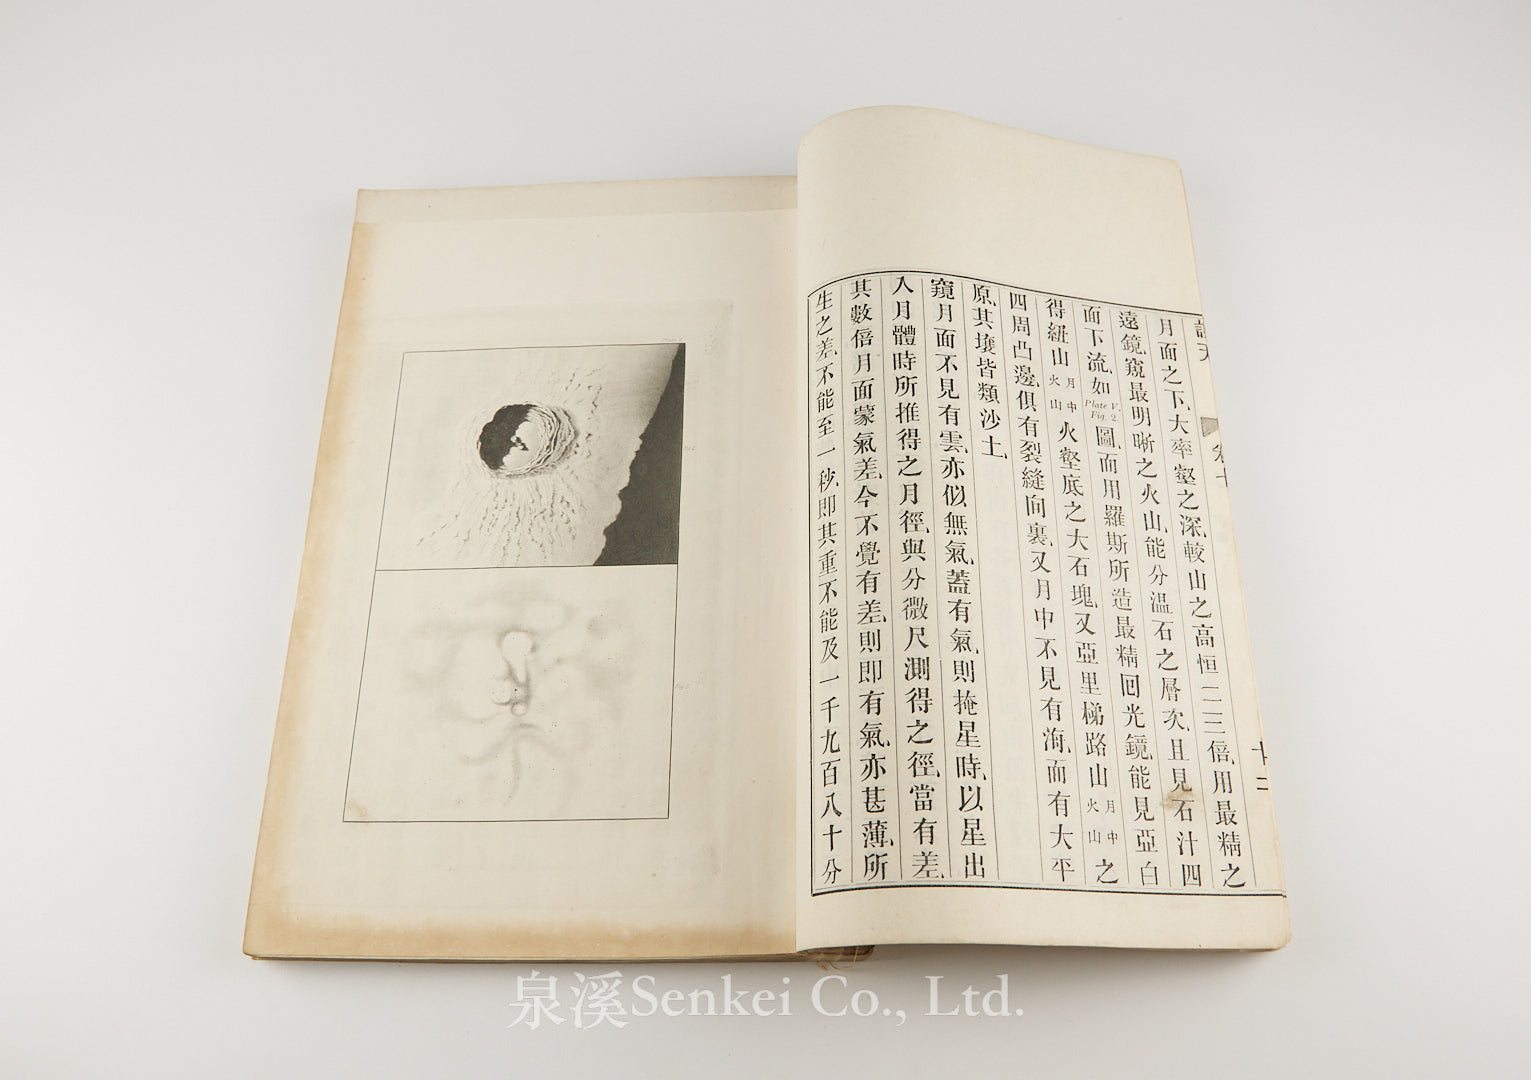 談天
卷七
十二
月面之下、大率壑之深、較山之高恒二三倍、用最精之
遠鏡、窺最明晰之火山、能分温石之層次、且見石汁四
面下流、如Plate V. Fig. 2.圖、而用羅斯所造最精回光鏡、能見亞白
得紐山月中火山火壑底之大石塊、又亞里梯路山月中火山之
四周凸邊、俱有裂縫向裏、又月中不見有海、而有大平
原、其壤皆類沙土、
窺月面不見有雲、亦似無氣、蓋有氣、則掩星時、以星出
入月體時所推得之月徑、與分微尺測得之徑、當有差、
其數倍月面蒙氣差、今不覺有差、則即有氣、亦甚薄、所
生之差、不能至一秒、即其重不能及一千九百八十分
泉溪Senkei Co., Ltd.